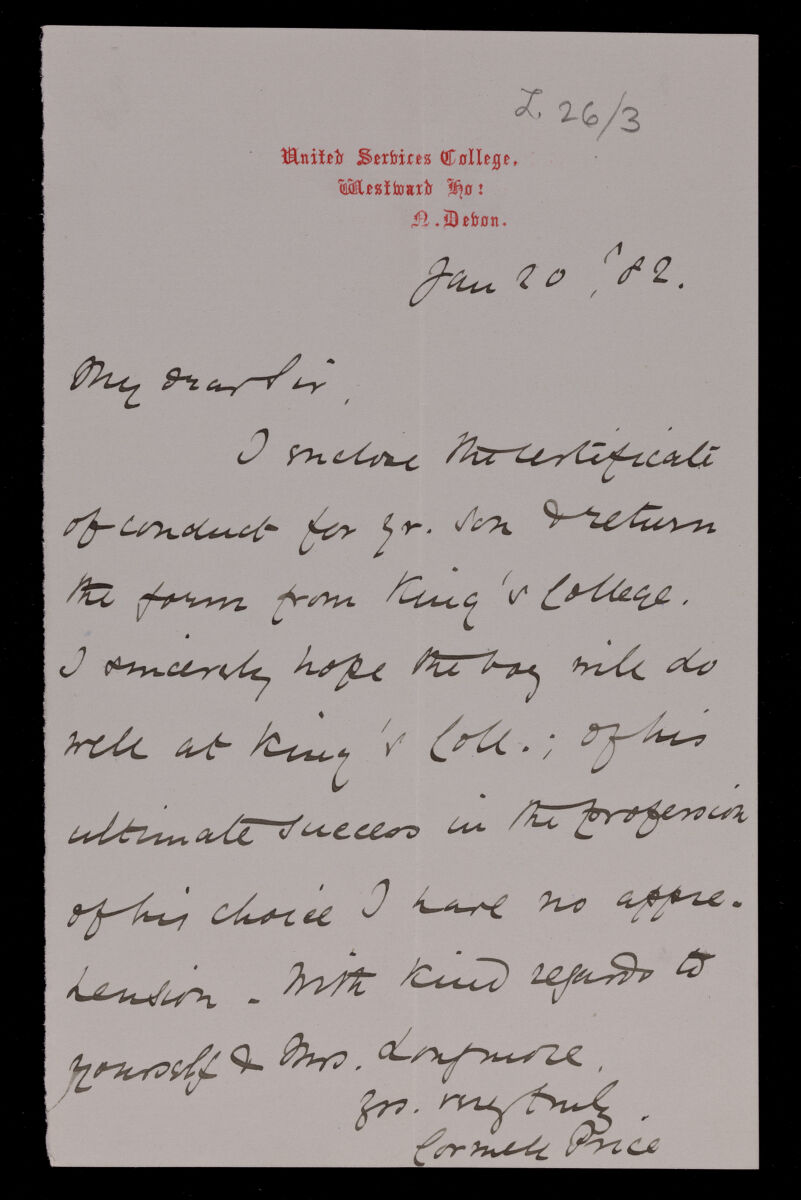 L. 26/3
United Services College,
Westward Ho:
N. Devon.
Jan 20, '82.
My dear Sir,
I enclose the certificate
of conduct for yr. son & return
the form from King's College.
I sincerely hope the boy will do
well at King's Coll.; of his
ultimate success in the profession
of his choice I have no appre-
hension. With kind regards to
yourself & Mrs. Longmore.
yrs. very truly.
Cormell Price